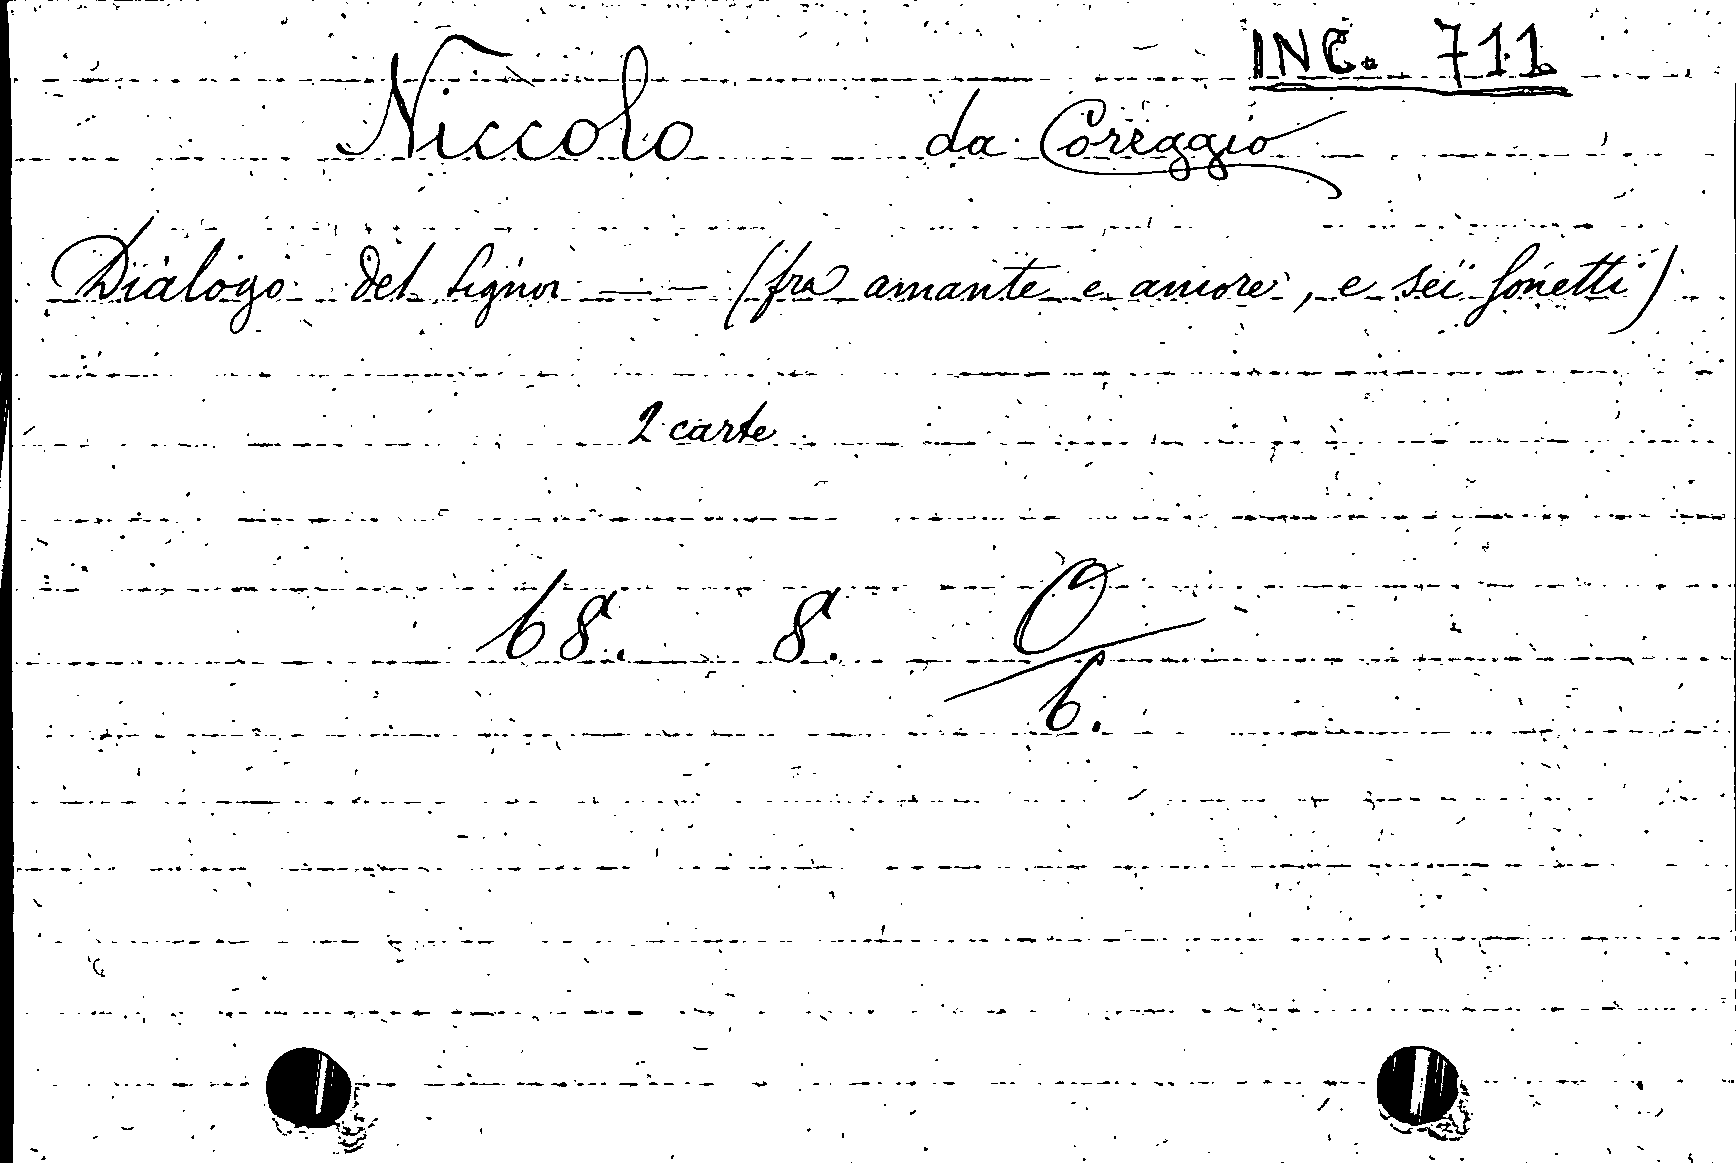 INC. 711
Niccolo da Coreggio
Dialogo del Signor — — (fra amante e amore, e sei sonetti)
2 carte
68. 8. O
6.